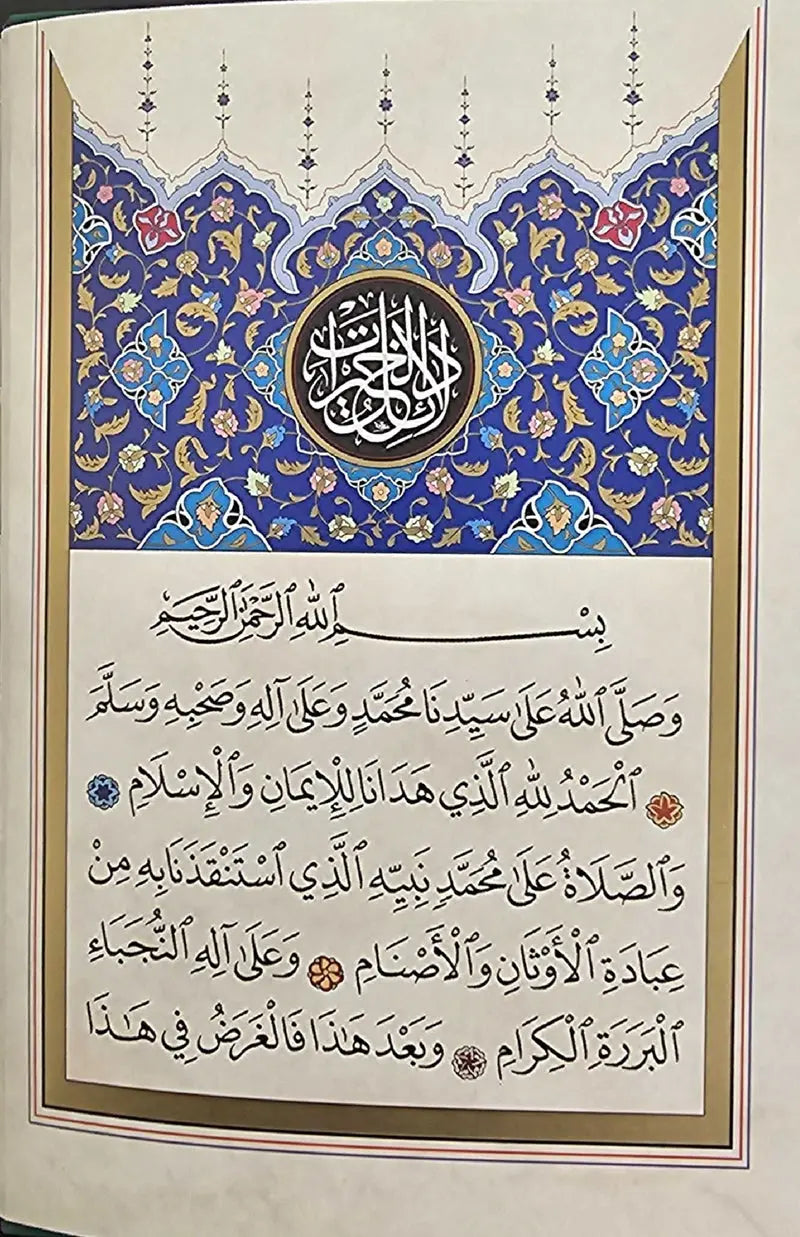 دلائل الخيرات
بِسْمِ ٱللهِ ٱلرَّحْمٰنِ ٱلرَّحِيمِ
وَصَلَّى ٱللهُ عَلَىٰ سَيِّدِنَا مُحَمَّدٍ وَعَلَىٰ آلِهِ وَصَحْبِهِ وَسَلَّمَ
ٱلْحَمْدُ لِلهِ ٱلَّذِي هَدَانَا لِلْإِيمَانِ وَٱلْإِسْلَامِ
وَٱلصَّلَاةُ عَلَىٰ مُحَمَّدٍ نَبِيِّهِ ٱلَّذِي ٱسْتَنْقَذَنَا بِهِ مِنْ
عِبَادَةِ ٱلْأَوْثَانِ وَٱلْأَصْنَامِ وَعَلَىٰ آلِهِ ٱلنُّجَبَاءِ
ٱلْبَرَرَةِ ٱلْكِرَامِ وَبَعْدَ هَٰذَا فَالْغَرَضُ فِي هَٰذَا